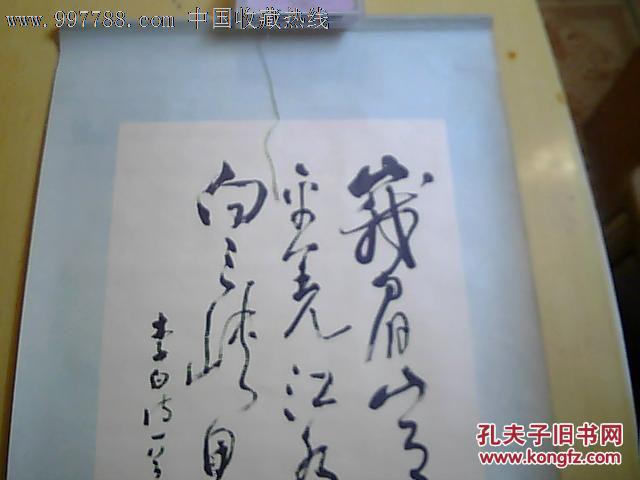 www.997788.com 中国收藏热线
峩眉山月
平羌江水
向三峡思
李白诗一首
孔夫子旧书网
www.kongfz.com